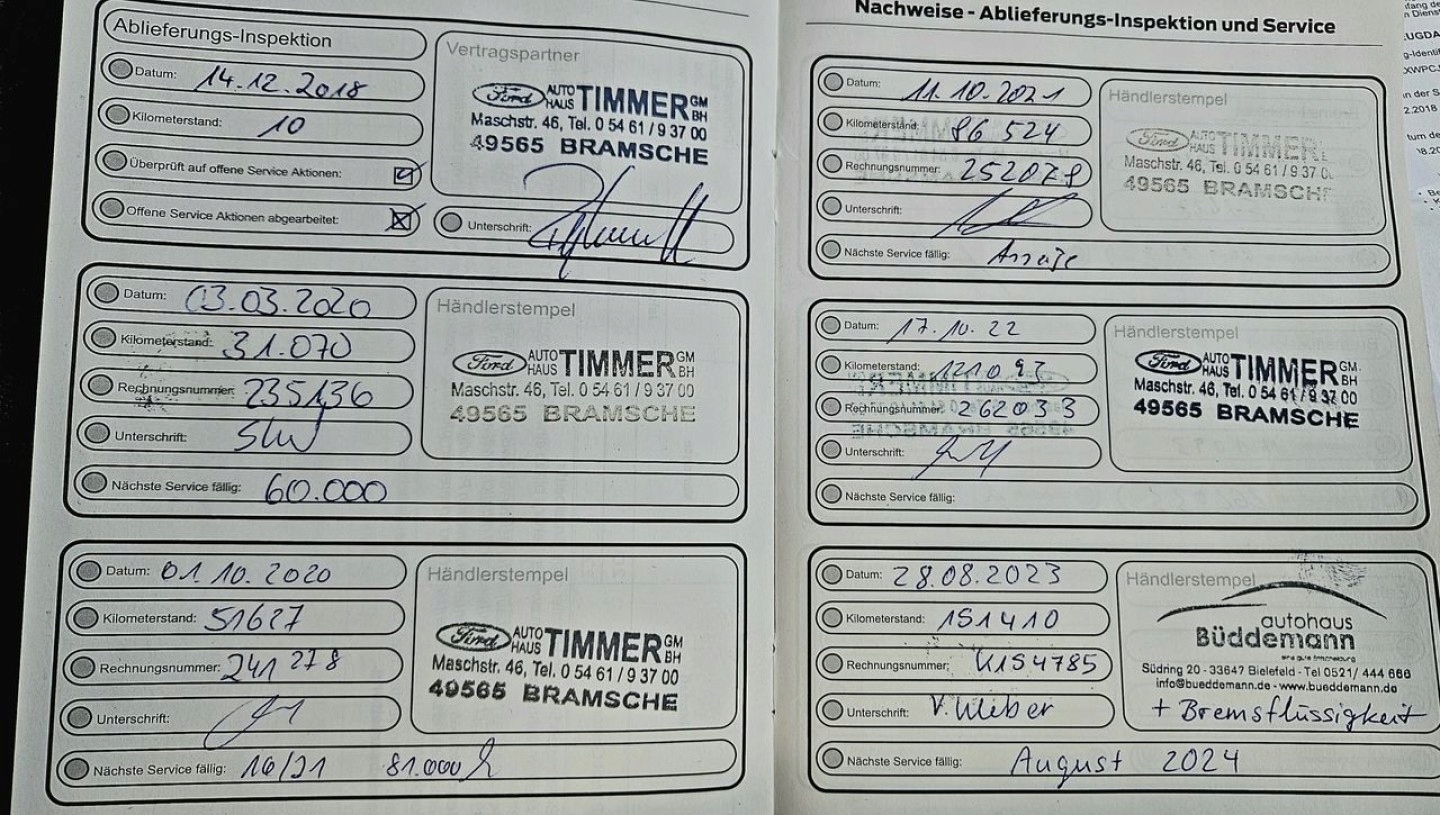 Ablieferungs-Inspektion
Datum: 14.12.2018
Kilometerstand: 10
Überprüft auf offene Service Aktionen:
Offene Service Aktionen abgearbeitet:
Vertragspartner
Ford AUTO HAUS TIMMER GM BH
Maschstr. 46, Tel. 0 54 61 / 9 37 00
49565 BRAMSCHE
Unterschrift:
Datum: 03.03.2020
Kilometerstand: 31.070
Rechnungsnummer: 235136
Unterschrift:
Nächste Service fällig: 60.000
Händlerstempel
Ford AUTO HAUS TIMMER GM BH
Maschstr. 46, Tel. 0 54 61 / 9 37 00
49565 BRAMSCHE
Datum: 01.10.2020
Kilometerstand: 51627
Rechnungsnummer: 241 278
Unterschrift:
Nächste Service fällig: 10/21 81.000
Händlerstempel
Ford AUTO HAUS TIMMER GM BH
Maschstr. 46, Tel. 0 54 61 / 9 37 00
49565 BRAMSCHE
Nachweise - Ablieferungs-Inspektion und Service
Datum: 11.10.2021
Kilometerstand: 86 524
Rechnungsnummer: 252078
Unterschrift:
Nächste Service fällig: Anzeige
Händlerstempel
Ford AUTO HAUS TIMMER
Maschstr. 46, Tel. 0 54 61 / 9 37 0
49565 BRAMSCHE
Datum: 17.10.22
Kilometerstand: 121093
Rechnungsnummer: 262033
Unterschrift:
Nächste Service fällig:
Händlerstempel
Ford AUTO HAUS TIMMER GM BH
Maschstr. 46, Tel. 0 54 61 / 9 37 00
49565 BRAMSCHE
Datum: 28.08.2023
Kilometerstand: 151410
Rechnungsnummer: K154785
Unterschrift: V. Weber
Nächste Service fällig: August 2024
Händlerstempel
autohaus
Büddemann
Südring 20 - 33647 Bielefeld - Tel 0521/ 444 666
info@bueddemann.de - www.bueddemann.de
+ Bremsflüssigkeit